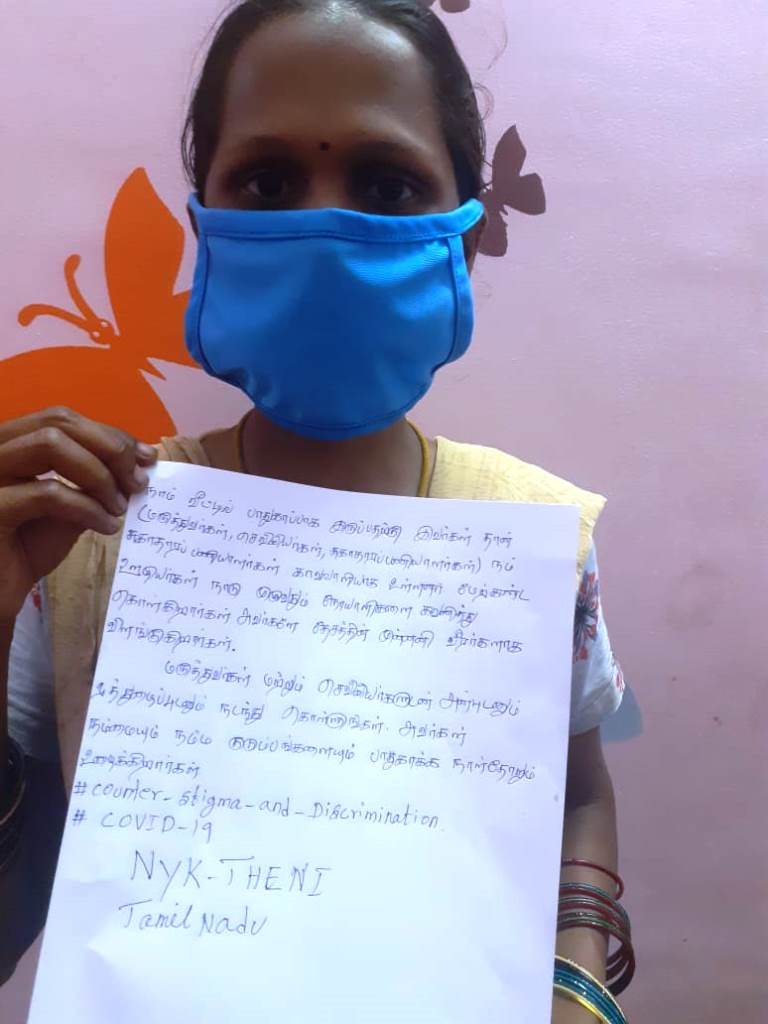 நாம் வீட்டில் பாதுகாப்பாக இருப்பதற்கு இவர்கள் தான்
(மருத்துவர்கள், செவிலியர்கள், சுகாதாரப்பணியாளர்கள்) நம்
சுகாதாரப் பணியாளர்கள் காவலாளியாக உள்ளனர் மேற்கண்ட
ஊழியர்கள் நாடு முழுவதும் நோயாளிகளை கவனித்து
கொள்கிறார்கள் அவர்களே தேசத்தின் முன்னணி வீரர்களாக
விளங்குகிறார்கள்.
மருத்துவர்கள் மற்றும் செவிலியர்களுடன் அன்புடனும்
ஒத்துழைப்புடனும் நடந்து கொள்ளுங்கள். அவர்கள்
நம்மையும் நம்ம குடும்பங்களையும் பாதுகாக்க நாள்தோறும்
உழைக்கிறார்கள்
#counter-stigma-and-Discrimination
# COVID-19
NYK-THENI
Tamil Nadu